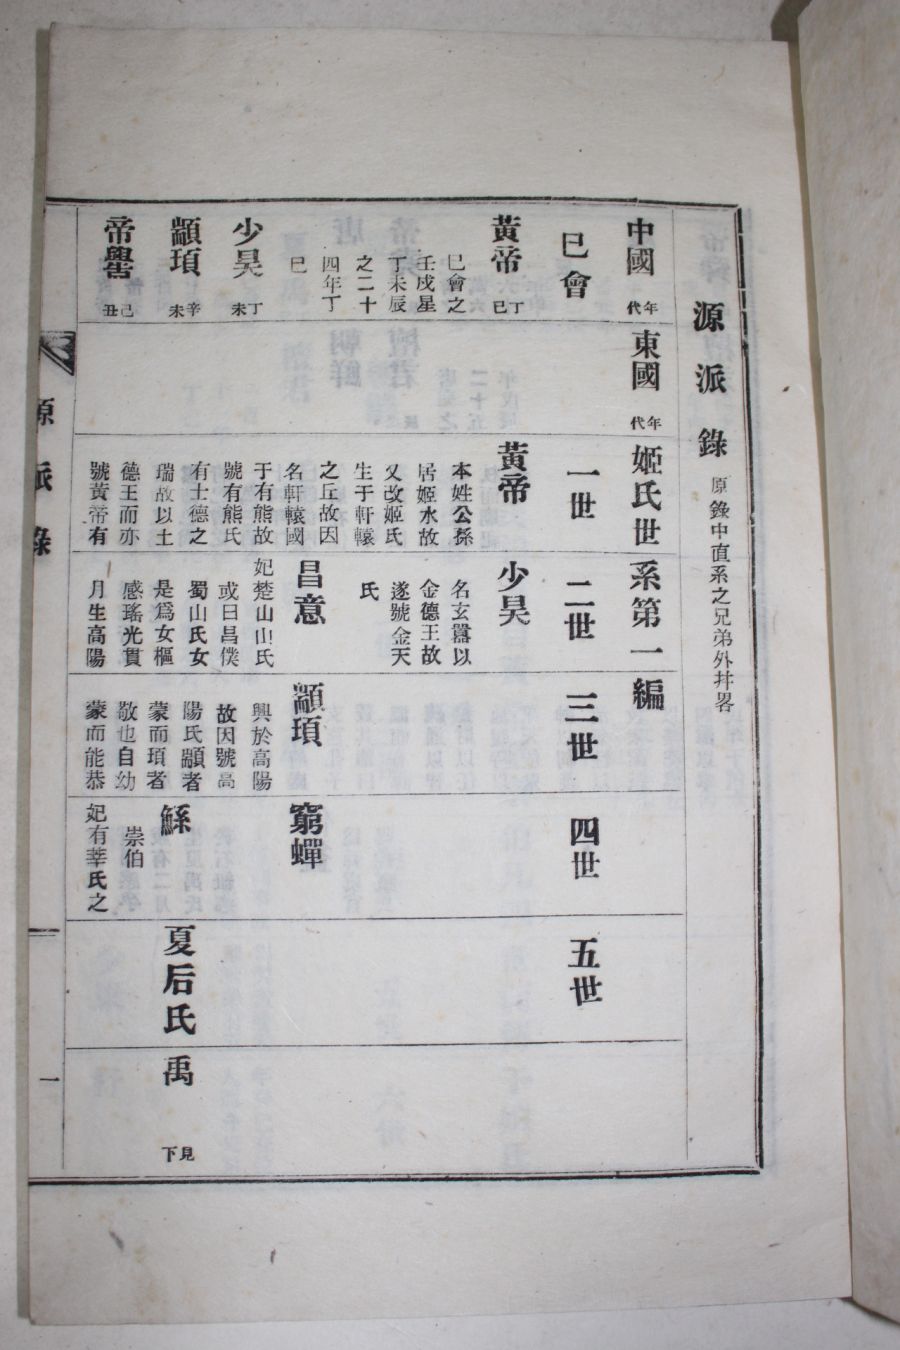 源派錄 原錄中直系之兄弟外幷畧
中國 年代
東國 年代
姬氏世系第一編
巳會
一世
二世
三世
四世
五世
黃帝 丁巳
巳會之
壬戌星
丁未辰
之二十
四年丁
巳
少昊 丁未
顓頊 辛未
帝嚳 己丑
黃帝
本姓公孫
居姬水故
又改姬氏
生于軒轅
之丘故因
名軒轅國
于有熊故
號有熊氏
有士德之
瑞故以土
德王而亦
號黃帝有
少昊
名玄囂以
金德王故
遂號金天
氏
昌意
妃楚山山氏
或曰昌僕
蜀山氏女
是爲女樞
感瑤光貫
月生高陽
顓頊
興於高陽
故因號高
陽氏顓者
蒙而頊者
敬也自幼
蒙而能恭
窮蟬
鯀
崇伯
妃有莘氏之
夏后氏
禹
見下
源派錄
一